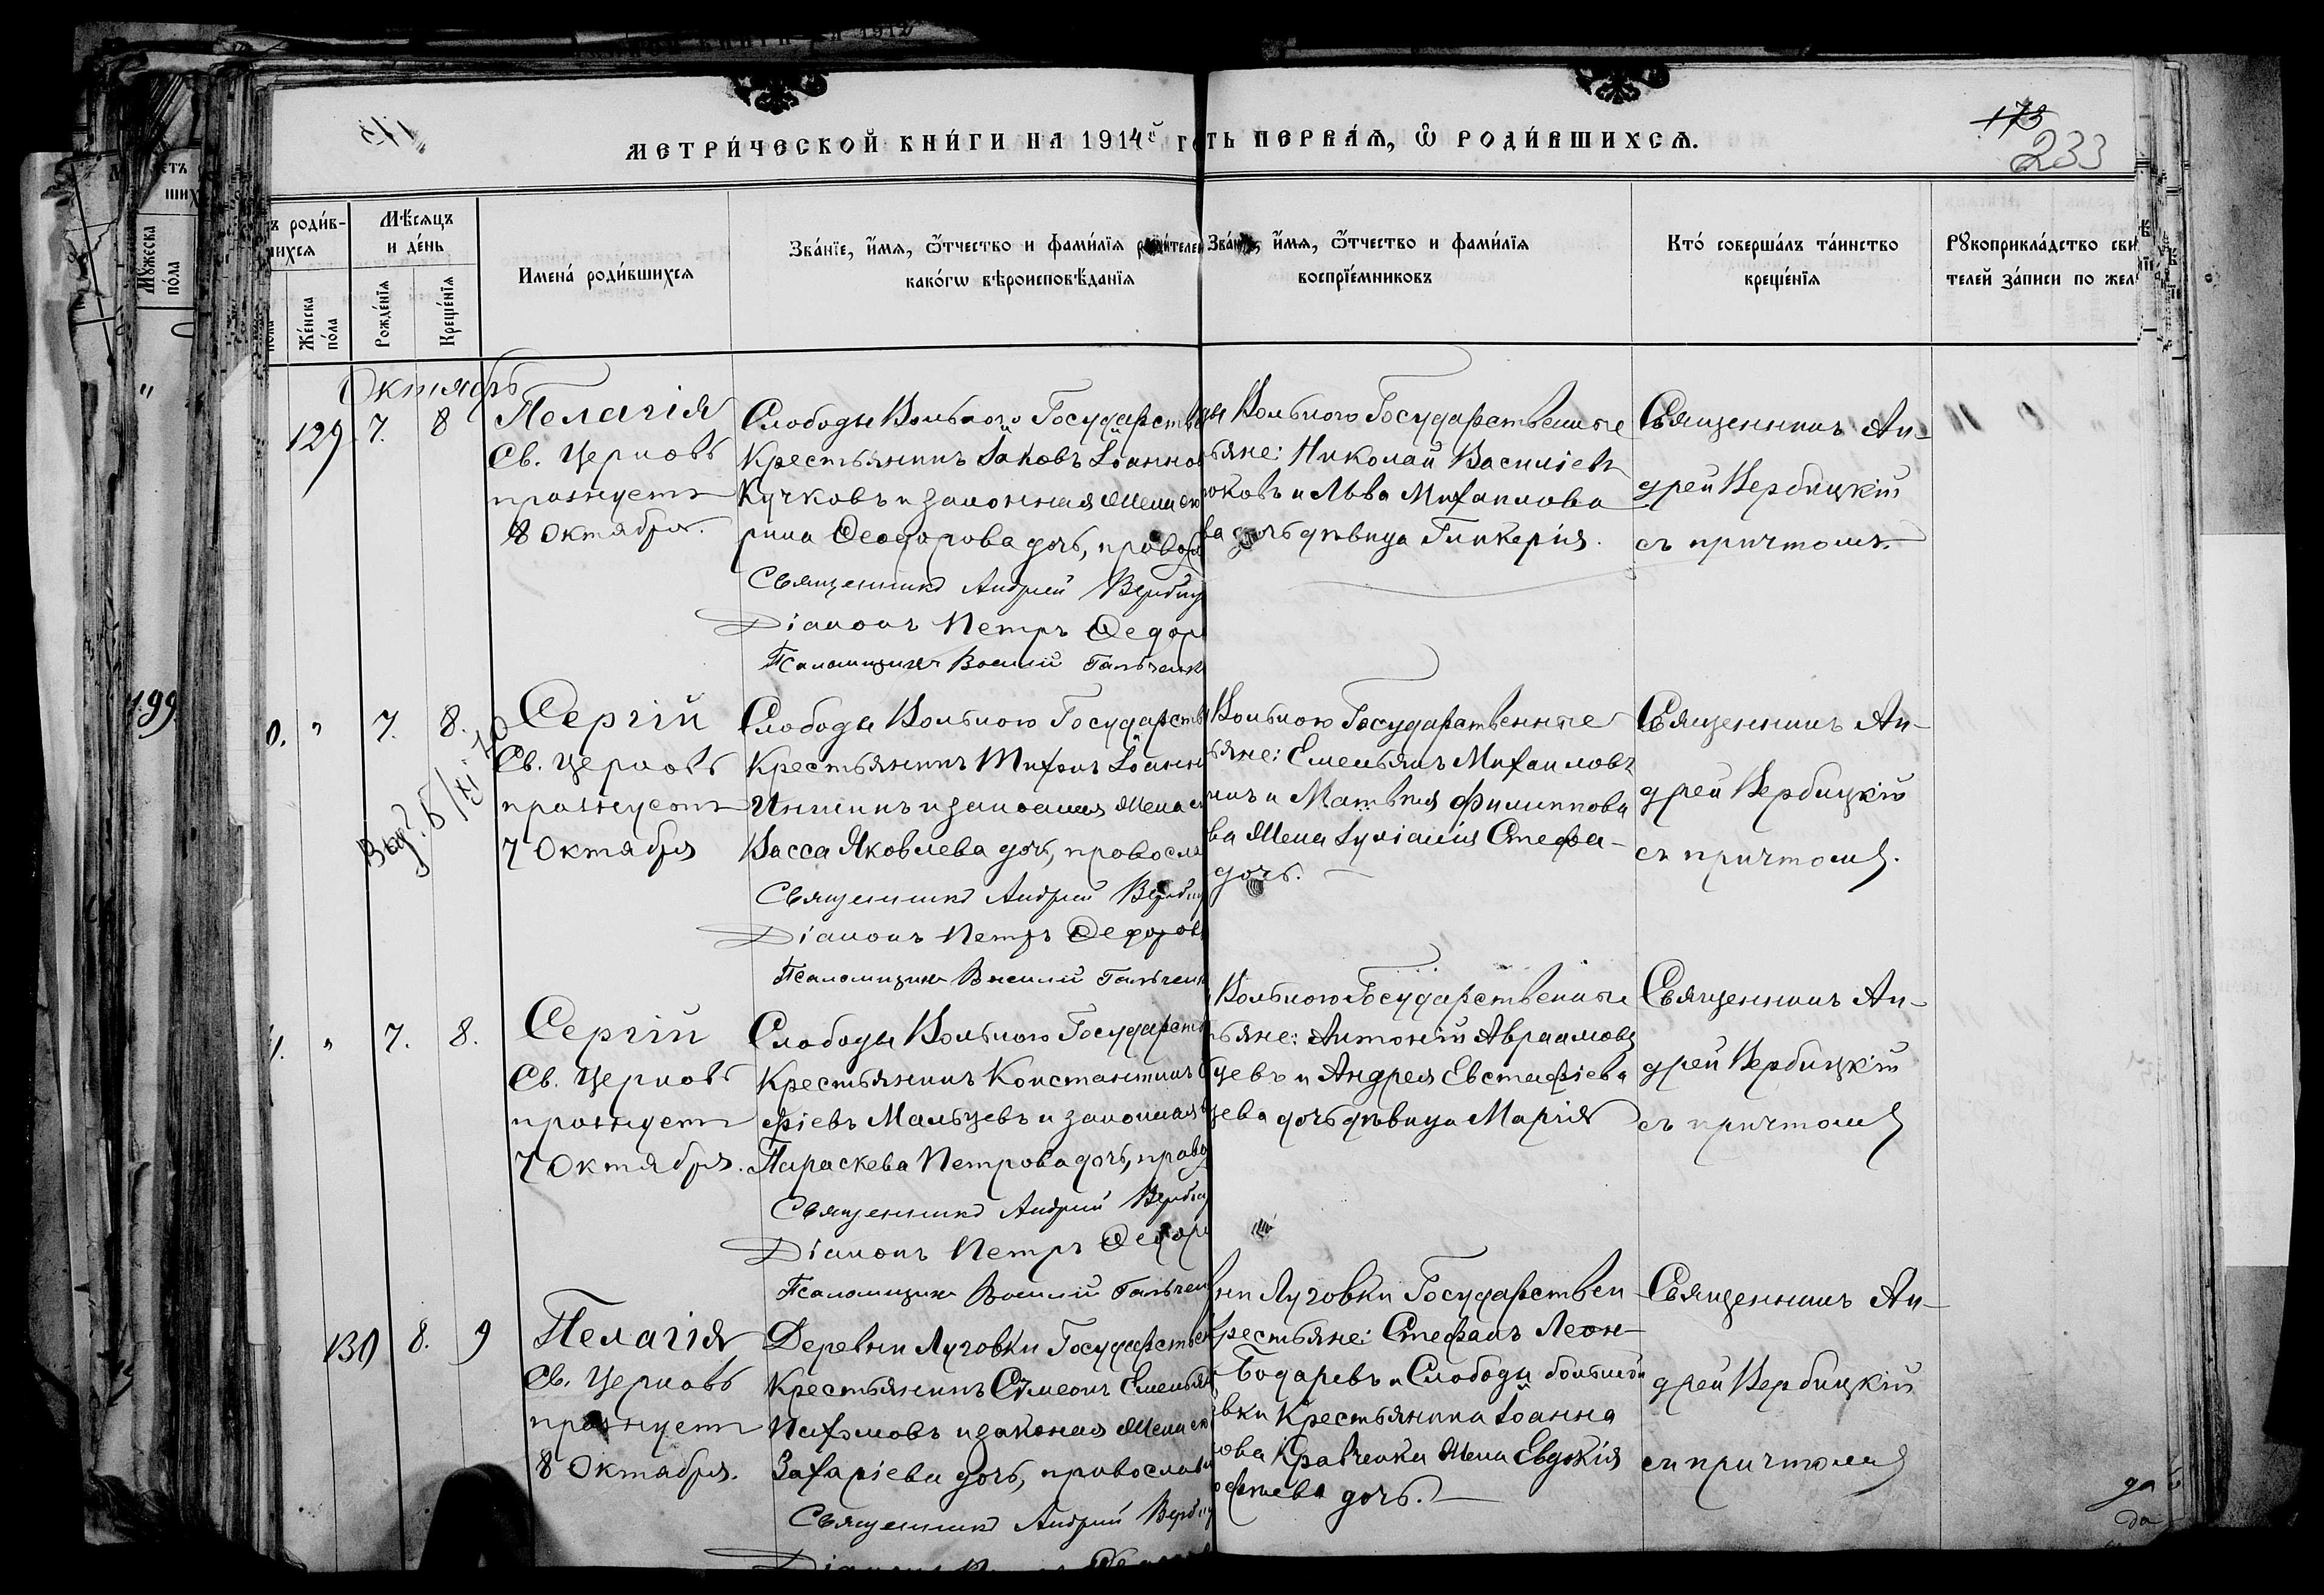 173
233
МЕТРИ́ЧЕСКОЙ КНИ́ГИ НА 1914й ГО
ТЬ ПЕРВАѦ, Ѽ РОДИ́ВШИХСѦ.
ъ роди́в-
шихся
Же́нска
по́ла
Мѣ́сяцъ
и де́нь
Рожде́нїя
Креще́нїя
Имена́ роди́вшихся
Зва́нїе, и҆́мя, ѻ҆́тчество и фами́лїя роди́телей
како́гѡ вѣроисповѣ́данїя
Зва́нїе, и҆́мя, ѻ҆́тчество и фами́лїя
воспрїе́мниковъ
Кто́ соверша́лъ та́инство
креще́нїя
Рꙋкоприкла́дство сви
телей за́писи по жел
Мꙋ́жеска
по́ла
Октябрь
129 7. 8
Пелагія
Св. Церковь
празнуетъ
8 Октября.
Слободы Вольного Государств
Крестьянинъ Іаковъ Іоанно
Кучковъ и законная жена ек
рина Ѳеодорова дочь, правос
Священникъ Андрей Вербиц
Діаконъ Петръ Ѳедор
Псаломщикъ Василій Гальченк
Вольного Государственные
ьяне: Николай Василіевъ
ковъ и Льва Михаилова
ва дочь дѣвица Гликерія.
Священникъ Ан-
дрей Вербицкій
съ причтомъ.
199
0. " 7. 8.
Сергій
Св. Церковь
празнуетъ
7 Октября
Слободы Вольного Государств
Крестьянинъ Тихонъ Іоанн
и законная жена
Васса Яковлева дочь, правосла
Священникъ Андрей Верби
Діаконъ Петръ Ѳедоров
Псаломщикъ Василій Гальченк
Вольного Государственные
ьяне: Емельянъ Михаиловъ
инъ и Матвѣя Филиппова
ва жена Іуліанія Стефа-
дочь.
Священникъ Ан-
дрей Вербицкій
съ причтомъ.
1. " 7. 8.
Сергій
Св. Церковь
празнуетъ
7 Октября.
Слободы Вольного Государств
Крестьянинъ Константинъ
фіевъ Мальцевъ и законная
Параскева Петрова дочь, право
Священникъ Андрей Верби
Діаконъ Петръ Ѳедор
Псаломщикъ Василій Гальчен
Вольного Государственные
ьяне: Антоній Авраамовъ
цевъ и Андрея Евстафіева
цева дочь дѣвица Марія
Священникъ Ан-
дрей Вербицкій
съ причтомъ
130 8. 9
Пелагія
Св. Церковь
празнуетъ
8 Октября.
Деревни Луговки Государствен
Крестьянинъ Сѵмеонъ Емельян
Пахомовъ и законная жена ек
Захаріева дочь, православ
Священникъ Андрей Вербиц
вни Луговки Государствен
Крестьяне: Стефанъ Леон-
Бодаревъ и Слободы больш
вки Крестьянина Іоанна
ова Кравченки жена Евдокія
дочь.
Священникъ Ан-
дрей Вербицкій
съ причтомъ